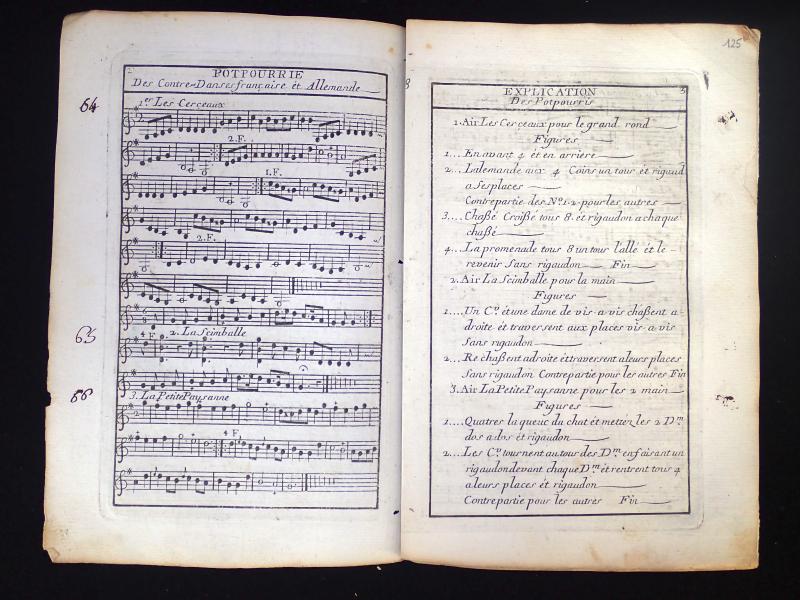 2
POTPOURRIE
Des Contre=Danses française et Allemande
64
1.er Les Cerçeaux
2. F.
1. F.
2. F.
65
4 F.
2. La Scimballe
66
3. La Petite Paysanne
4 F.
125
3
EXPLICATION
Des Potpourris
1. Air Les Cerçeaux pour le grand rond
Figures
1... En avant 4 et en arriere
2... Lalemande aux 4 Coins un tour et rigaud
a Ses places
Contrepartie des Nos 1. 2. pour les autres
3.... Chaßé Croißé tous 8. et rigaudon a chaque
chaßé
4.... La promenade tous 8 un tour l'allé et le
revenir Sans rigaudon Fin
2. Air La Scimballe pour la main
Figures
1.... Un C.er et une dame de vis-a-vis chaßent a
droite et traversent aux places vis-a-vis
Sans rigaudon
2... Re chaßent adroite et traversent a leurs places
Sans rigaudon Contrepartie pour les autres Fin
3. Air La Petite Paysanne pour les 2 main
Figures
1.... Quatres la queue du chat et metiéz les 2 D.m
dos a dos et rigaudon
2... Les C.er tournent autour des D.m en faisant un
rigaudon devant chaque D.m et rentrent tous 4
a leurs places et rigaudon
Contrepartie pour les autres Fin